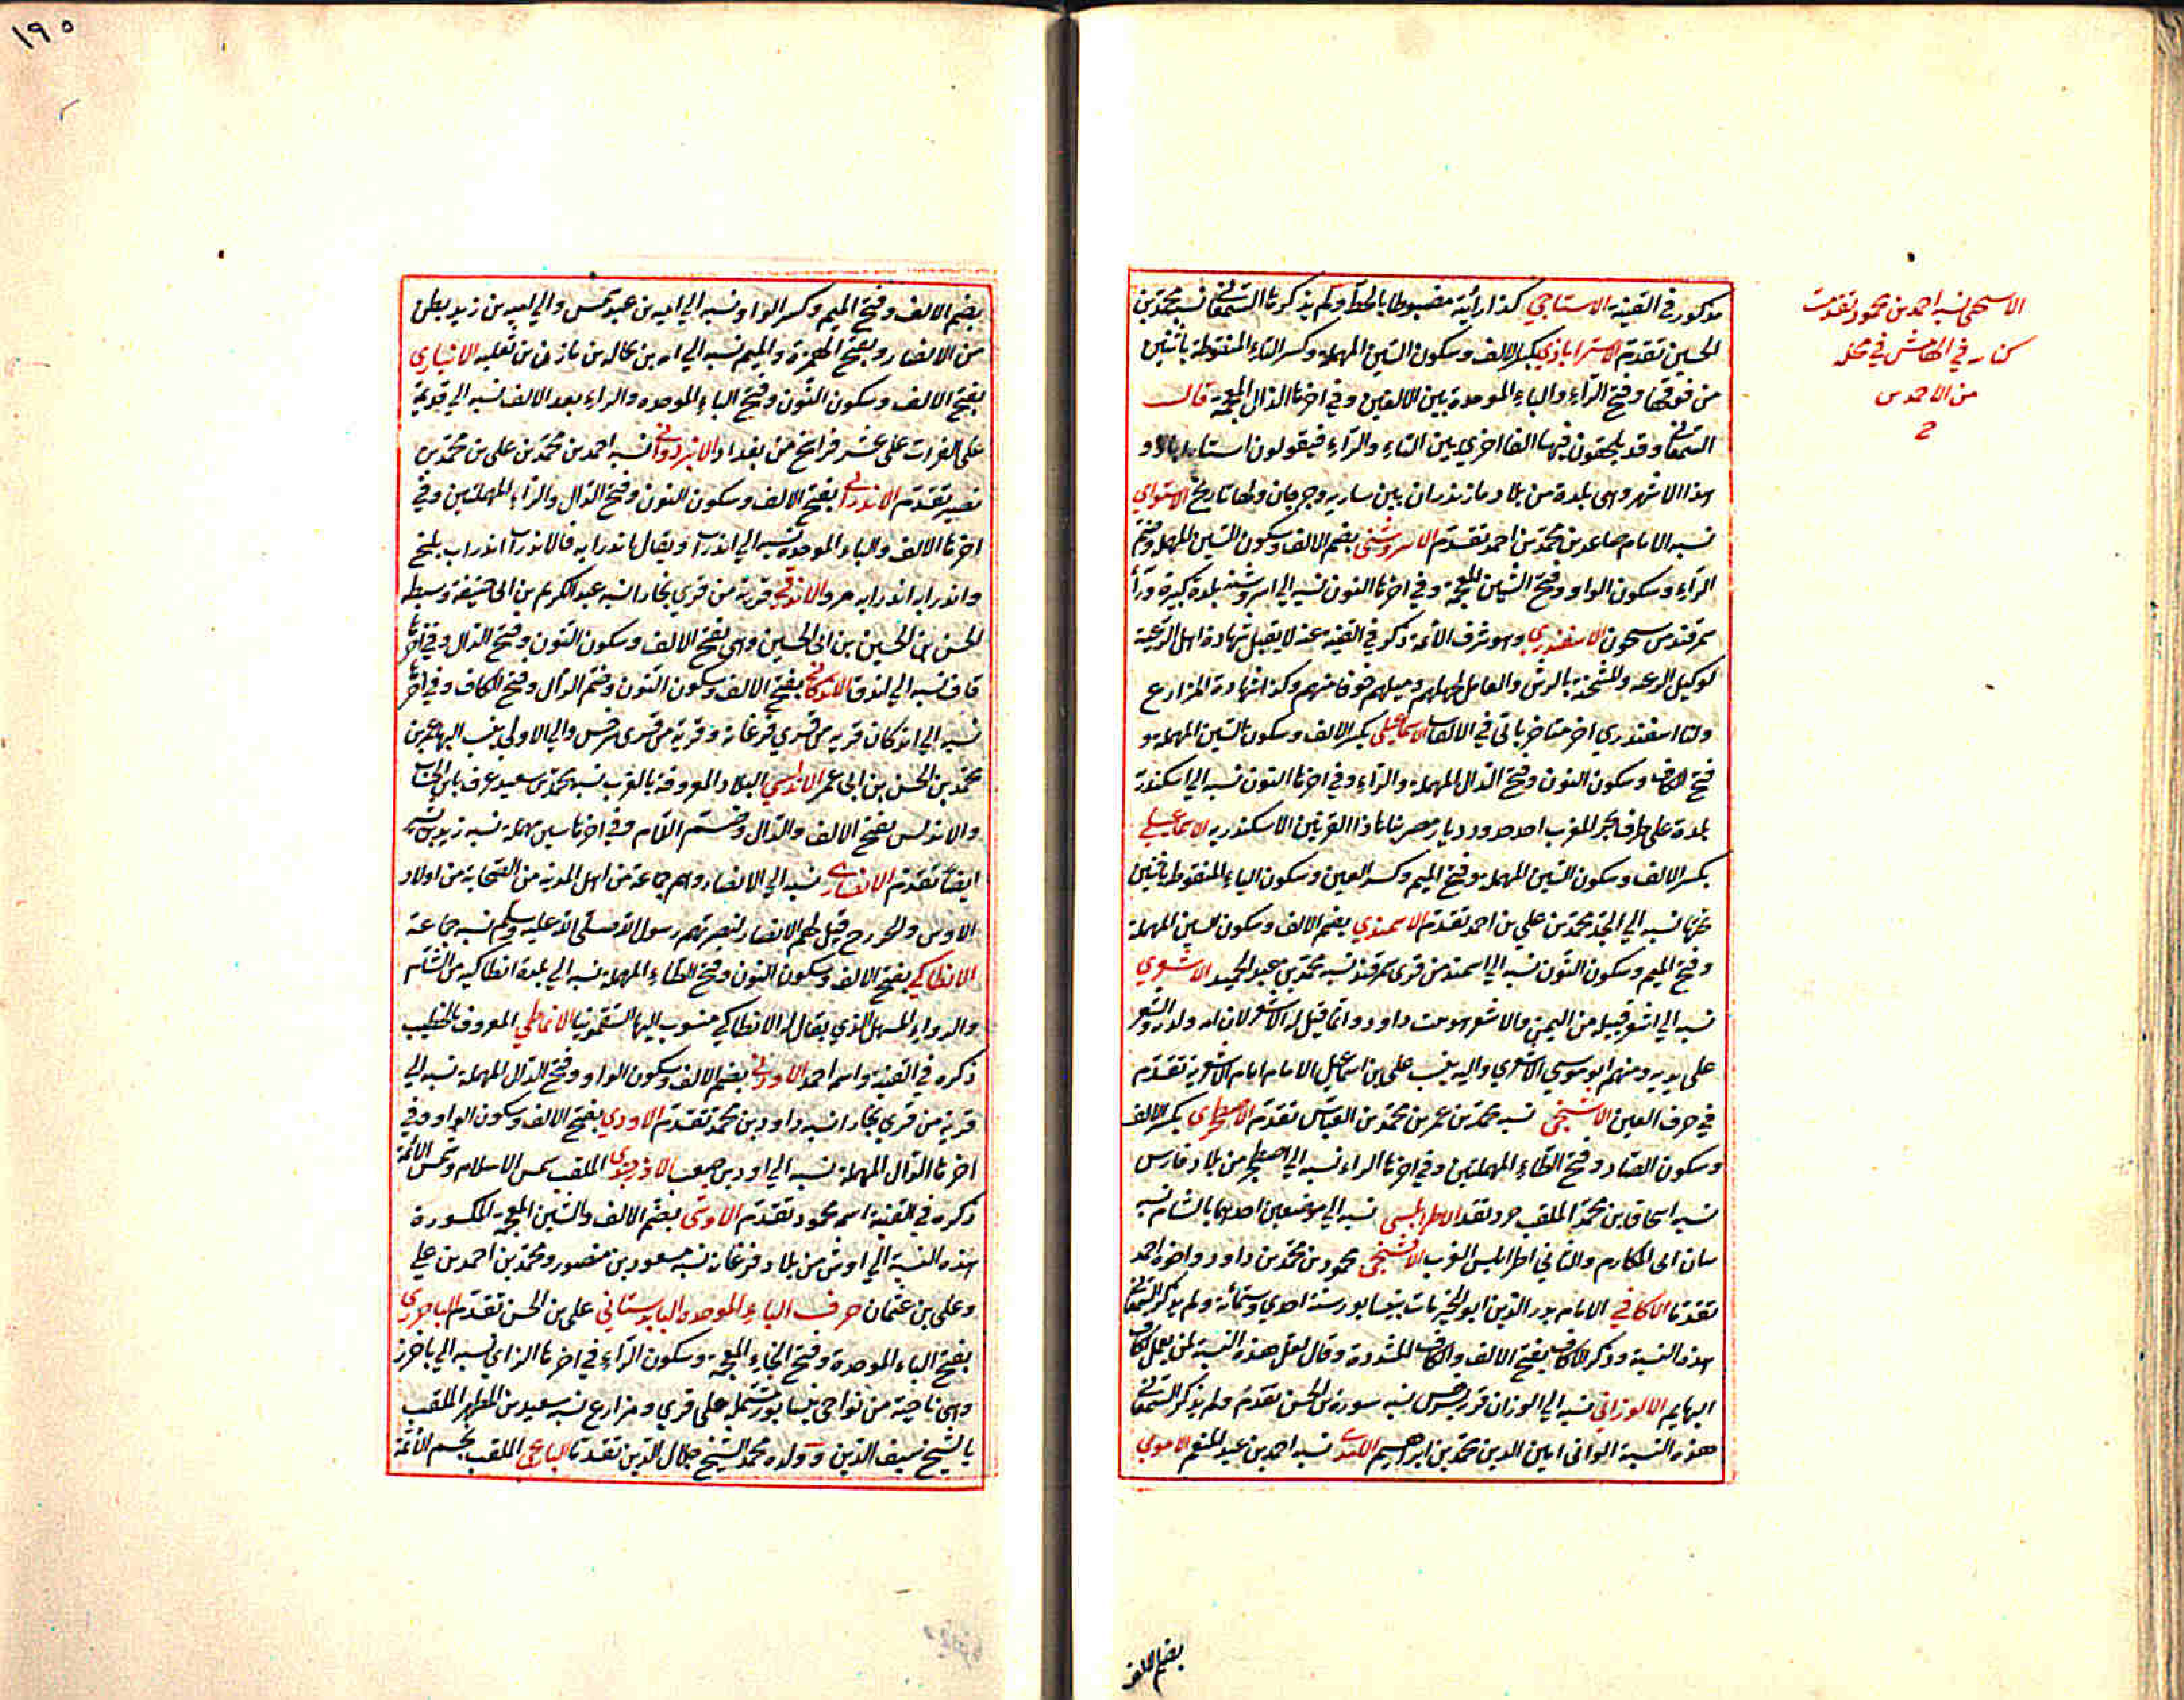 مذكور في القنية الاستاجي كذا رأيته مضبوطا بالخط ولم يذكرها السمعاني نسبة محمد بن
الحسين تقدم الاستراباذي بكسر الالف وسكون السين المهملة وكسر التاء المنقوطة باثنين
من فوقها وفتح الراء والباء الموحدة بين الالفين وفي اخرها الذال المعجمة قال
السمعاني وقد يلحقون فيها الفا اخرى بين التاء والراء فيقولون استاراباد و
هذا الاشهر وهي بلدة من بلاد مازندران بين سارية وجرجان ولها تاريخ الاستواي
نسبة الامام صاعد بن محمد بن احمد تقدم الاسروشني بضم الالف وسكون السين المهملة وضم
الراء وسكون الواو وفتح الشين المعجمة وفي اخرها النون نسبة الي اسروشنة بلدة كبيرة وراء
سمرقند من سيحون الاسفندري وهو شرف الائمة ذكر في القنية عنه لا يقبل شهادة اهل الرعية
لوكيل الرعية والشحنة بالرش والعامل لجهلهم وميلهم خوفا منهم وكذا شهادة المزارع
ولنا اسفندري اخر متاخر ياتي في الالقاب الاسماعيلي بكسر الالف وسكون السين المهملة و
فتح الكاف وسكون النون وفتح الدال المهملة والراء وفي اخرها النون نسبة الي اسكندرة
بلدة على طرف بحر المغرب احد حدود ديار مصر بناها ذا القرنين الاسكندرية الاسماعيلي
بكسر الالف وسكون السين المهملة وفتح الميم وكسر العين وسكون الياء المنقوطة باثنين
تحتها نسبة الي الجد محمد بن علي بن احمد تقدم الاسمندي بضم الالف وسكون السين المهملة
وفتح الميم وسكون النون نسبة الي اسمند من قرى سمرقند نسبة محمد بن عبد الحميد الاشعري
نسبة الي اشعر قبيلة من اليمن والاشعر هو نبت داود وانما قيل له الاشعر لان امه ولدته والشعر
على يديه ومنهم ابو موسي الاشعري واليه ينسب علي بن اسماعيل الامام امام الاشعرية تقدم
في حرف العين الاشتيخني نسبة محمد بن عمر بن محمد بن العباس تقدم الاصطخري بكسر الالف
وسكون الصاد وفتح الطاء المهملتين وفي اخرها الراء نسبة الي اصطخر من بلاد فارس
نسبة اسحاق بن محمد الملقب حرد تقدم الاطرابلسي نسبة الي موضعين احدهما بالشام نسبة
سان ابي المكارم والثاني اطرابلس الغرب محمود بن محمد بن داود واخوه احمد
تقدما الاكافي الامام بدر الدين ابو الخير مات بنيسابور سنة احدي وستمائة ولم يذكر السمعاني
هذه النسبة وذكر الاكاف بفتح الالف والكاف المشددة وقال لعل هذه النسبة لمن يعمل اكاف
البهايم الالوزاني نسبة الي الوزان قرية بسرخس نسبة سورة بن الحسن تقدم ولم يذكر السمعاني
هذه النسبة الواني امين الدين محمد بن ابراهيم نسبة احمد بن عبد المنعم الاموي
بضم الالف
نسبة احمد بن محمود تقدمت
في الهامش في محله
من الاحمدين
١٩٥
بضم الالف وفتح الميم وكسر الواو نسبة الي امية بن عبد شمس والي امية بن زيد بطن
من الانصار وبفتح الهمزة والميم نسبة الي امة بن بجالة بن مازن بن ثعلبة الانباري
بفتح الالف وسكون النون وفتح الباء الموحدة والراء بعد الالف نسبة الي قديمة
على الفرات على عشر فراسخ من بغداد نسبة احمد بن محمد بن علي بن محمد بن
نصير تقدم الاندرابي بفتح الالف وسكون النون وفتح الدال والراء المهملتين وفي
اخرها الالف والباء الموحدة نسبة الي اندراب ويقال اندرابه فالاندراب اندراب بلخ
واندرابه اندرابه مرو الاندقي قرية من قري بخارا نسبة عبد الكريم بن ابي حنيفة وسبطه
الحسن بن الحسين بن ابي الحسين وهي بفتح الالف وسكون النون وفتح الدال وفي اخرها
قاف نسبة الي اندق الاندكاني بفتح الالف وسكون النون وضم الدال وفتح الكاف وفي اخرها
نسبة الي اندكان قرية من قري فرغانه وقرية من قرى سرخس والي الاولي ينسب اليها عمر بن
محمد بن الحسن بن ابي عمر الاندلسي البلاد المعروفة بالغرب نسبة محمد بن سعيد عرف بابن
والاندلس بفتح الالف والدال وضم اللام وفي اخرها سين مهملة نسبة زيد بن
ايضا تقدم الانصاري نسبة الي الانصار وهم جماعة من اهل المدينة من الصحابة من اولاد
الاوس والخزرج قيل لهم الانصار لنصرتهم رسول الله صلى الله عليه وسلم نسبة جماعة
الانطاكي بفتح الالف وسكون النون وفتح الطاء المهملة نسبة الي بلدة انطاكيه من الشام
والدواء المسهل الذي يقال له الانطاكي منسوب اليها السقمونيا الانماطي المعروف بالخطيب
ذكره في القنية واسمه احمد الاودني بضم الالف وسكون الواو وفتح الدال المهملة نسبة الي
قرية من قري بخارا نسبة داود بن محمد تقدم الاودي بفتح الالف وسكون الواو وفي
اخرها الدال المهملة نسبة الي اود بن صعب الاوزجندي الملقب شمس الاسلام وشمس الائمة
ذكره في القنية اسمه محمود تقدم الاوشي بضم الالف والشين المعجمة المكسورة
هذه النسبة الي اوش من بلاد فرغانه نسبة مسعود بن منصور ومحمد بن احمد بن علي
وعلي بن عثمان حرف الباء الموحدة البابرستاني علي بن الحسن تقدم الباخرزي
بفتح الباء الموحدة وفتح الخاء المعجمة وسكون الراء في اخرها الزاي نسبة الي باخرز
وهي ناحية من نواحي نيسابور مشتملة على قري ومزارع نسبة سعيد بن المطهر الملقب
بالشيخ سيف الدين وولده محمد الشيخ جلال الدين تقدما الملقب نجم الائمة